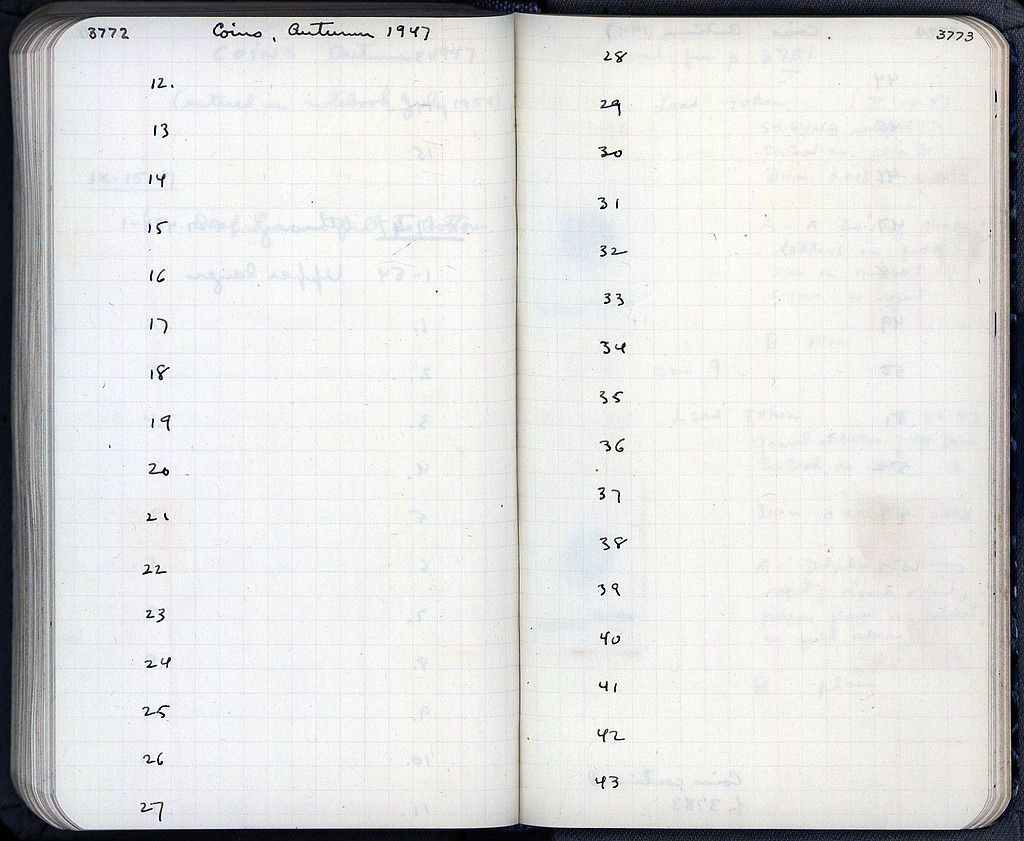 3772
Coins, Autumn 1947
12.
13
14
15
16
17
18
19
20
21
22
23
24
25
26
27
3773
28
29
30
31
32
33
34
35
36
37
38
39
40
41
42
43